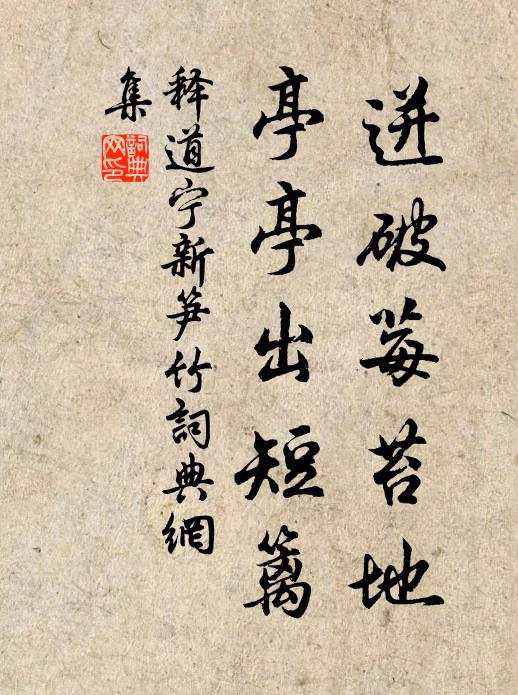 迸破莓苔地
亭亭出短篱
释道宁新笋竹詞典網
集
詞典
网印